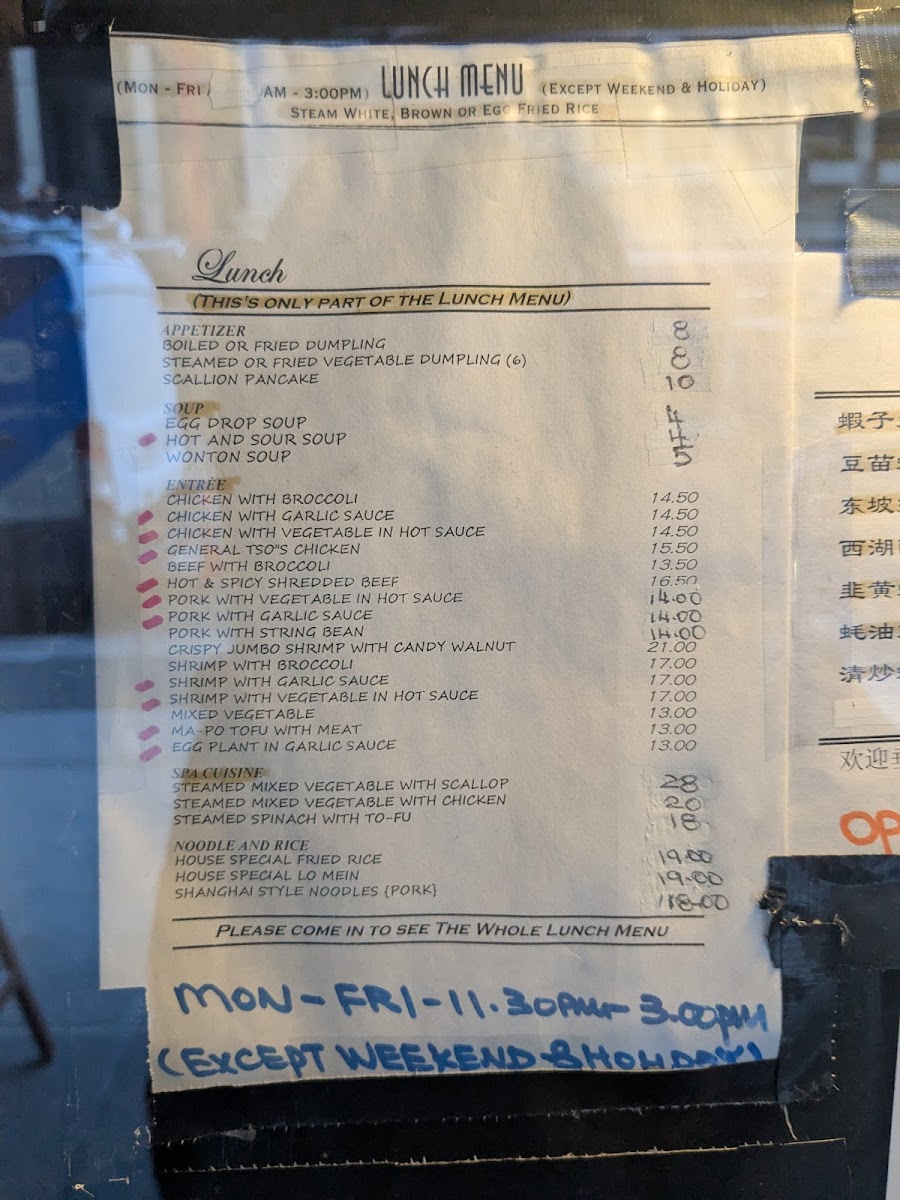 (MON - FRI AM - 3:00PM) LUNCH MENU (EXCEPT WEEKEND & HOLIDAY)
STEAM WHITE, BROWN OR EGG FRIED RICE
Lunch
(THIS'S ONLY PART OF THE LUNCH MENU)
APPETIZER
BOILED OR FRIED DUMPLING 8
STEAMED OR FRIED VEGETABLE DUMPLING (6) 8
SCALLION PANCAKE 10
SOUP
EGG DROP SOUP 4
HOT AND SOUR SOUP 4
WONTON SOUP 5
ENTRÈE
CHICKEN WITH BROCCOLI 14.50
CHICKEN WITH GARLIC SAUCE 14.50
CHICKEN WITH VEGETABLE IN HOT SAUCE 14.50
GENERAL TSO"S CHICKEN 15.50
BEEF WITH BROCCOLI 13.50
HOT & SPICY SHREDDED BEEF 16.50
PORK WITH VEGETABLE IN HOT SAUCE 14.00
PORK WITH GARLIC SAUCE 14.00
PORK WITH STRING BEAN 14.00
CRISPY JUMBO SHRIMP WITH CANDY WALNUT 21.00
SHRIMP WITH BROCCOLI 17.00
SHRIMP WITH GARLIC SAUCE 17.00
SHRIMP WITH VEGETABLE IN HOT SAUCE 17.00
MIXED VEGETABLE 13.00
MA-PO TOFU WITH MEAT 13.00
EGG PLANT IN GARLIC SAUCE 13.00
SPA CUISINE
STEAMED MIXED VEGETABLE WITH SCALLOP 28
STEAMED MIXED VEGETABLE WITH CHICKEN 20
STEAMED SPINACH WITH TO-FU 18
NOODLE AND RICE
HOUSE SPECIAL FRIED RICE 19.00
HOUSE SPECIAL LO MEIN 19.00
SHANGHAI STYLE NOODLES {PORK} 18.00
PLEASE COME IN TO SEE THE WHOLE LUNCH MENU
MON - FRI - 11.30AM - 3.00PM
(EXCEPT WEEKEND & HOLIDAY)
蝦子
豆苗
东坡
西湖
韭黄
蚝油
清炒
欢迎
OP